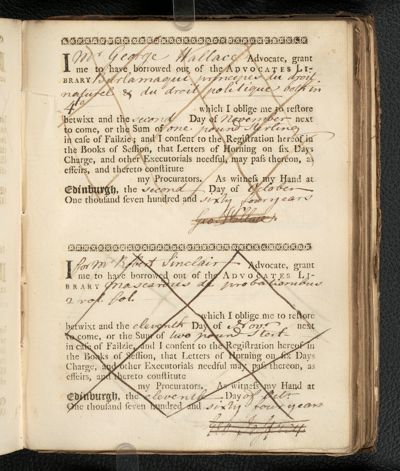 I Mr George Wallace Advocate, grant
me to have borrowed out of the ADVOCATES LI-
BRARY Burlamaqui principes du droit
naturel & du droit politique both in
4to
which I oblige me to reſtore
betwixt and the second Day of November next
to come, or the Sum of one pound Sterling
in caſe of Failzie; and I conſent to the Regiſtration hereof in
the Books of Seſſion, that Letters of Horning on ſix Days
Charge, and other Executorials needful, may paſs thereon, as
effeirs, and thereto conſtitute
my Procurators. As witneſs my Hand at
Edinburgh, the second Day of October
One thouſand ſeven hundred and sixty four years
Geo: Wallace
I for Mr Robert Sinclair Advocate, grant
me to have borrowed out of the ADVOCATES LI-
BRARY Mascardus de probationibus
2 vol. fol.
which I oblige me to reſtore
betwixt and the eleventh Day of Novr next
to come, or the Sum of two pound Sterl.
in caſe of Failzie, and I conſent to the Regiſtration hereof in
the Books of Seſſion, that Letters of Horning on ſix Days
Charge, and other Executorials needful may paſs thereon, as
effeirs, and thereto conſtitute
my Procurators. As witneſs my Hand at
Edinburgh, the eleventh Day of Octr
One thouſand ſeven hundred and sixty four years